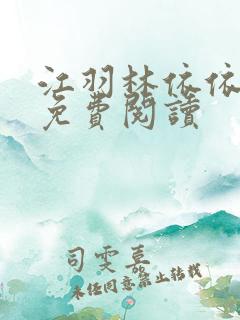 江羽林依依
免費閱讀
司雯草
未经同意禁止转载